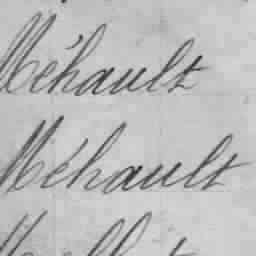 Méhault
Méhault